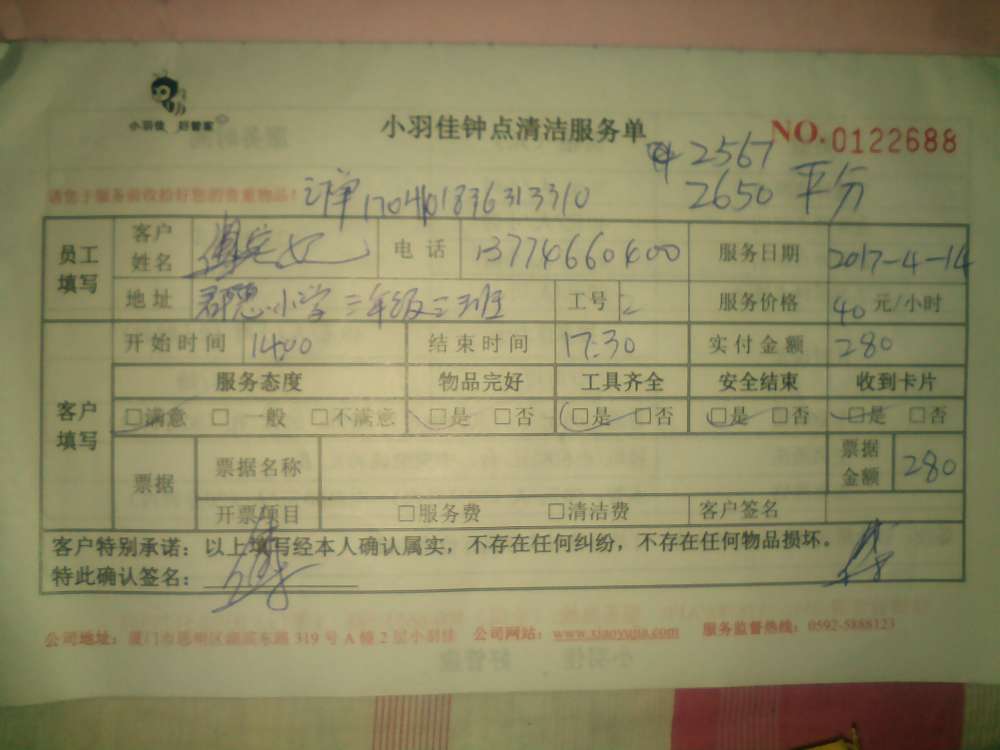 小羽佳 好管家
小羽佳钟点清洁服务单 NO.0122688
2567
请您于服务前收拾好您的贵重物品！ 订单170401836313310 2650 平分
员工填写 客户姓名 电话 13774660400 服务日期 2017-4-14
地址 群惠小学二年级三班 工号 2 服务价格 40 元/小时
客户填写 开始时间 14:00 结束时间 17:30 实付金额 280
服务态度 物品完好 工具齐全 安全结束 收到卡片
□满意 □一般 □不满意 □是 □否 □是 □否 □是 □否 □是 □否
票据 票据名称 票据金额 280
开票项目 □服务费 □清洁费 客户签名
客户特别承诺：以上填写经本人确认属实，不存在任何纠纷，不存在任何物品损坏。
特此确认签名：
公司地址：厦门市思明区湖滨东路 319 号 A 幢 2 层小羽佳 公司网站：www.xiaoyujia.com 服务监督热线：0592-5888123